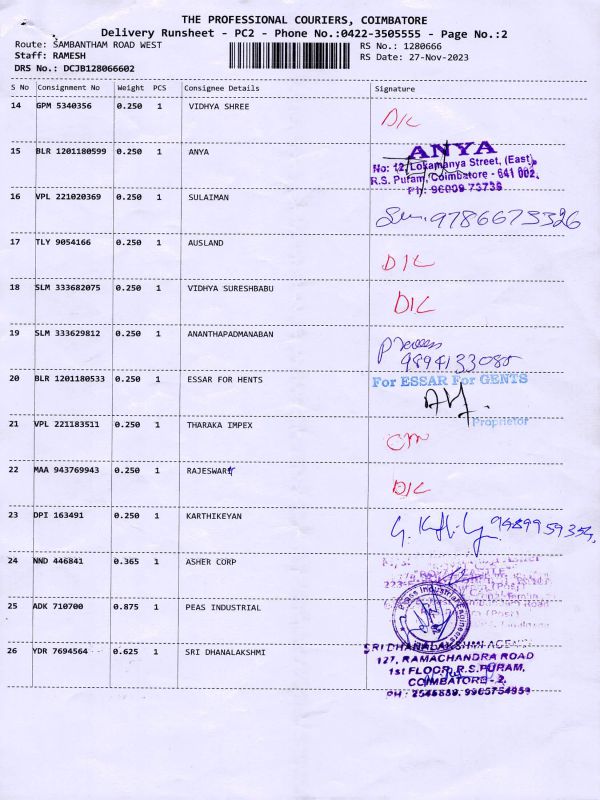 THE PROFESSIONAL COURIERS, COIMBATORE
Delivery Runsheet - PC2 - Phone No.:0422-3505555 - Page No.:2
Route: SAMBANTHAM ROAD WEST RS No.: 1280666
Staff: RAMESH RS Date: 27-Nov-2023
DRS No.: DCJB128066602
S No Consignment No Weight PCS Consignee Details Signature
14 GPM 5340356 0.250 1 VIDHYA SHREE D/L
15 BLR 1201180599 0.250 1 ANYA
ANYA
No: 12, Lokamanya Street, (East),
R.S. Puram, Coimbatore - 641 002.
Ph: 96009 73738
16 VPL 221020369 0.250 1 SULAIMAN 9786675326
17 TLY 9054166 0.250 1 AUSLAND D/L
18 SLM 333682075 0.250 1 VIDHYA SURESHBABU D/L
19 SLM 333629812 0.250 1 ANANTHAPADMANABAN
20 BLR 1201180533 0.250 1 ESSAR FOR HENTS
For ESSAR For GENTS
Proprietor
21 VPL 221183511 0.250 1 THARAKA IMPEX
22 MAA 943769943 0.250 1 RAJESWARI D/L
23 DPI 163491 0.250 1 KARTHIKEYAN
24 NND 446841 0.365 1 ASHER CORP
25 ADK 710700 0.875 1 PEAS INDUSTRIAL
26 YDR 7694564 0.625 1 SRI DHANALAKSHMI
SRI DHANALAKSHMI AGENCY
127, RAMACHANDRA ROAD
1st FLOOR, R.S.PURAM,
COIMBATORE - 2.